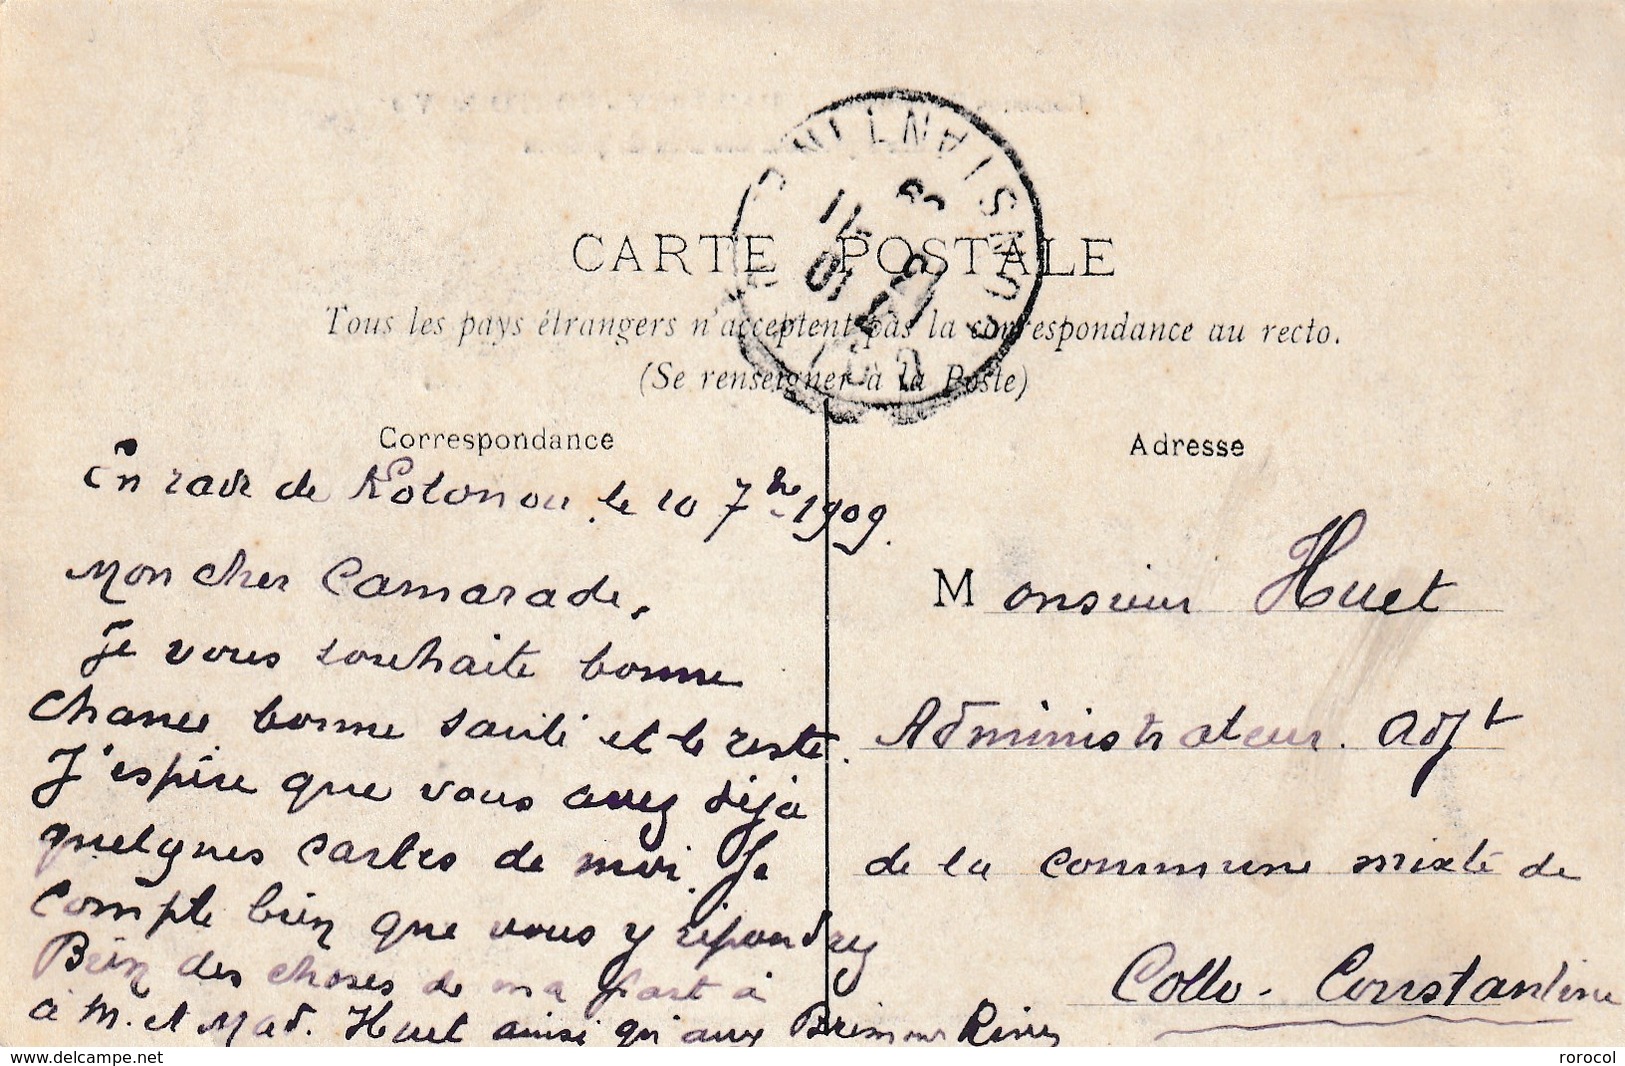 CARTE POSTALE
Tous les pays étrangers n'acceptent pas la correspondance au recto.
(Se renseigner à la Poste)
Correspondance
En rade de Kotonou le 10 7bre 1909.
Mon cher Camarade,
Je vous souhaite bonne
chance bonne santé et le reste.
J'espère que vous avez déjà
quelques cartes de moi. Je
compte bien que vous y répondrez
Bien des choses de ma part à
à M. et Mad. Huet ainsi qu'aux
Adresse
Monsieur Huet
Administrateur Adjt
de la commune mixte de
Collo - Constantine
CONSTANTINE
delcampe.net
rorocol